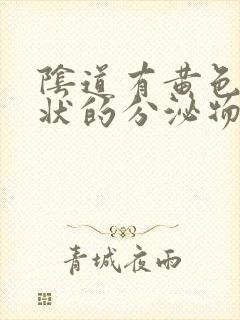 陰道有黄色
状的分泌物
青城夜雨